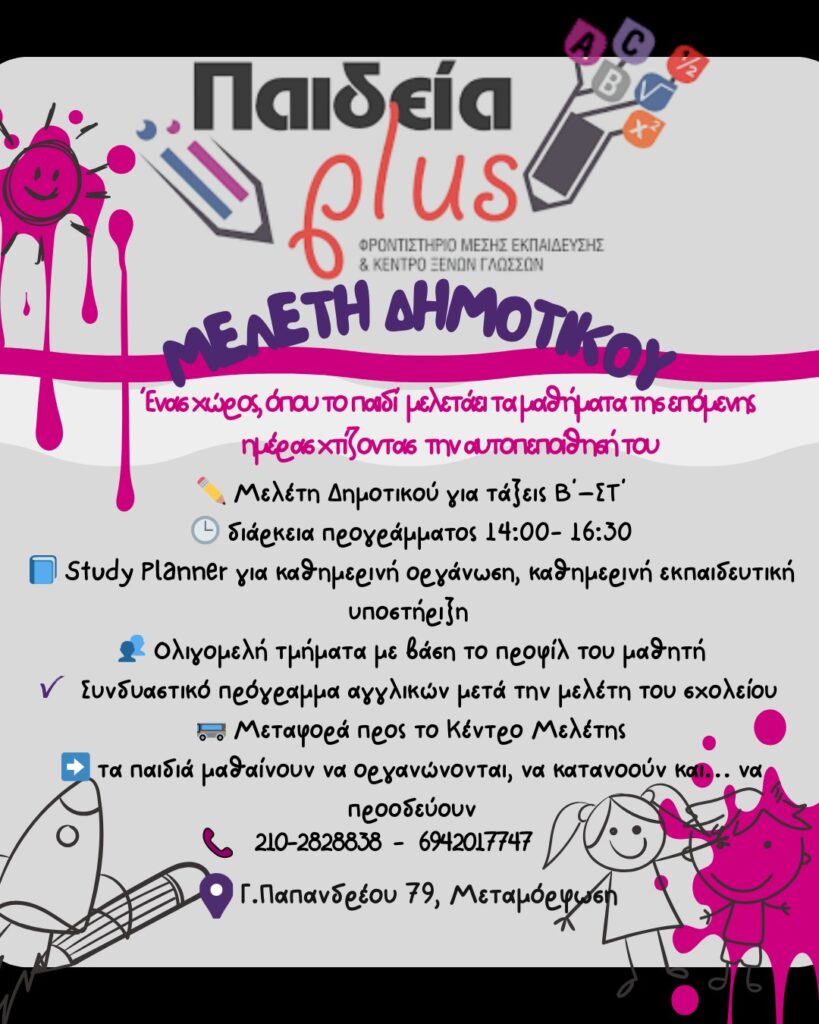 Παιδεία
plus
A C B ½ √ x²
ΦΡΟΝΤΙΣΤΗΡΙΟ ΜΕΣΗΣ ΕΚΠΑΙΔΕΥΣΗΣ
& ΚΕΝΤΡΟ ΞΕΝΩΝ ΓΛΩΣΣΩΝ
ΜΕΛΕΤΗ ΔΗΜΟΤΙΚΟΥ
Ένας χώρος, όπου το παιδί μελετάει τα μαθήματα της επόμενης
ημέρας χτίζοντας την αυτοπεποίθησή του
Μελέτη Δημοτικού για τάξεις Β΄–ΣΤ΄
διάρκεια προγράμματος 14:00- 16:30
Study Planner για καθημερινή οργάνωση, καθημερινή εκπαιδευτική
υποστήριξη
Ολιγομελή τμήματα με βάση το προφίλ του μαθητή
Συνδυαστικό πρόγραμμα αγγλικών μετά την μελέτη του σχολείου
Μεταφορά προς το Κέντρο Μελέτης
τα παιδιά μαθαίνουν να οργανώνονται, να κατανοούν και... να
προοδεύουν
210-2828838 - 6942017747
Γ.Παπανδρέου 79, Μεταμόρφωση